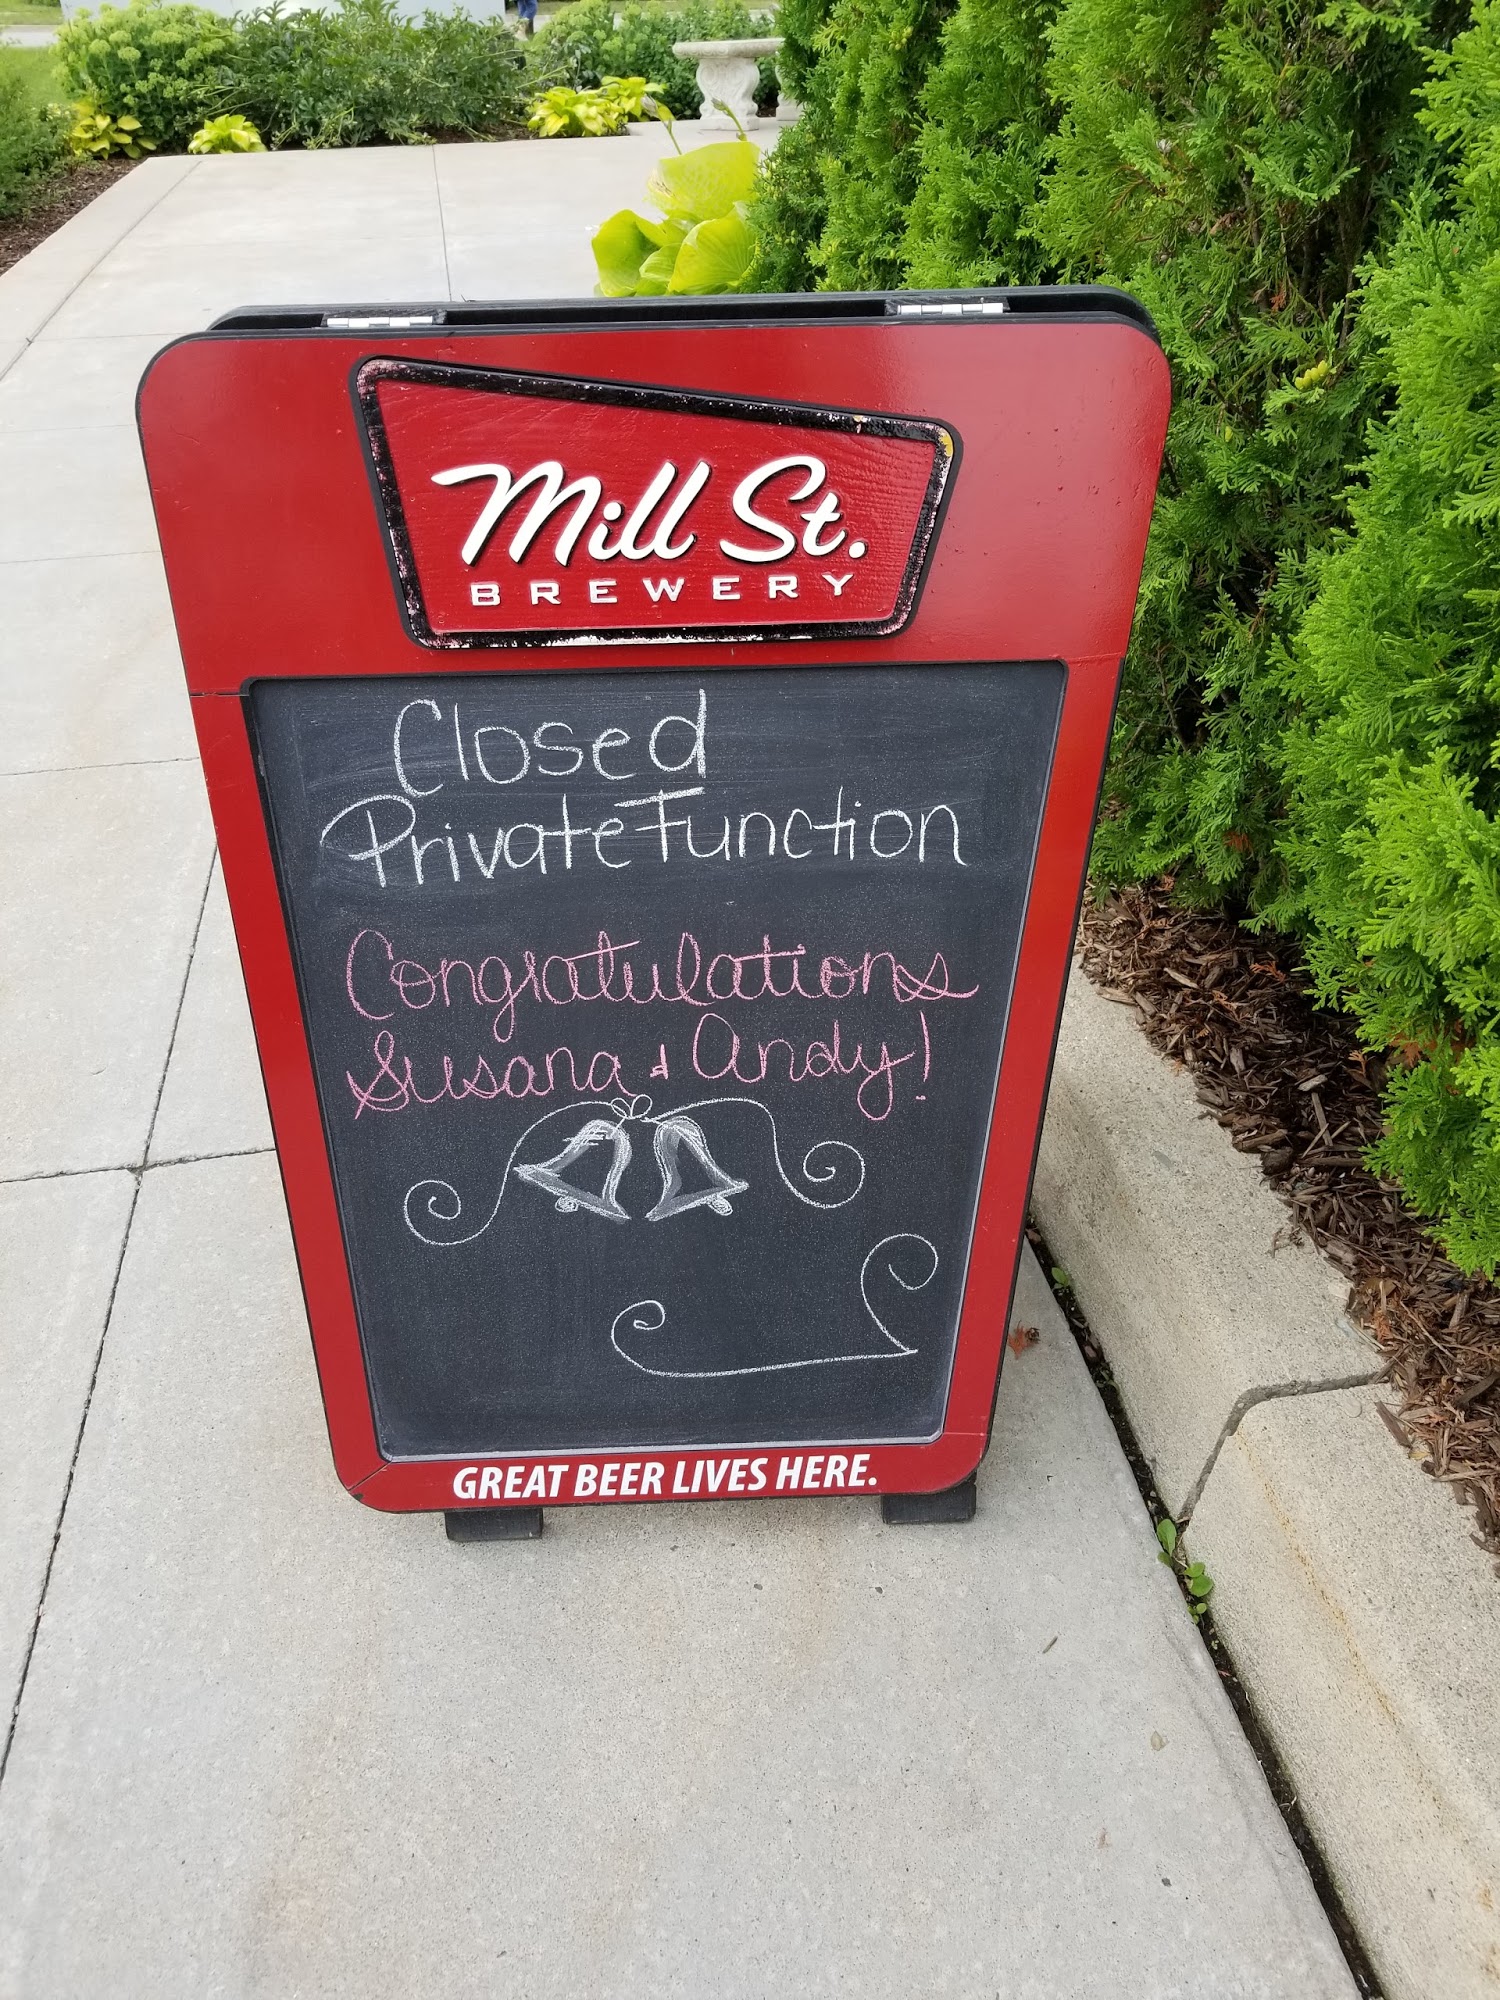 Mill St.
BREWERY
Closed
Private Function
Congratulations
Susana & Andy!
GREAT BEER LIVES HERE.